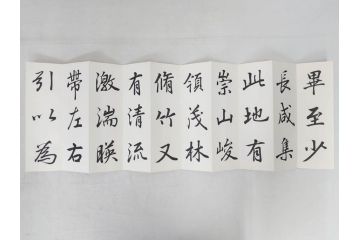 畢至少
長咸集
此地有
崇山峻
領茂林
脩竹又
有清流
激湍暎
帶左右
引以為